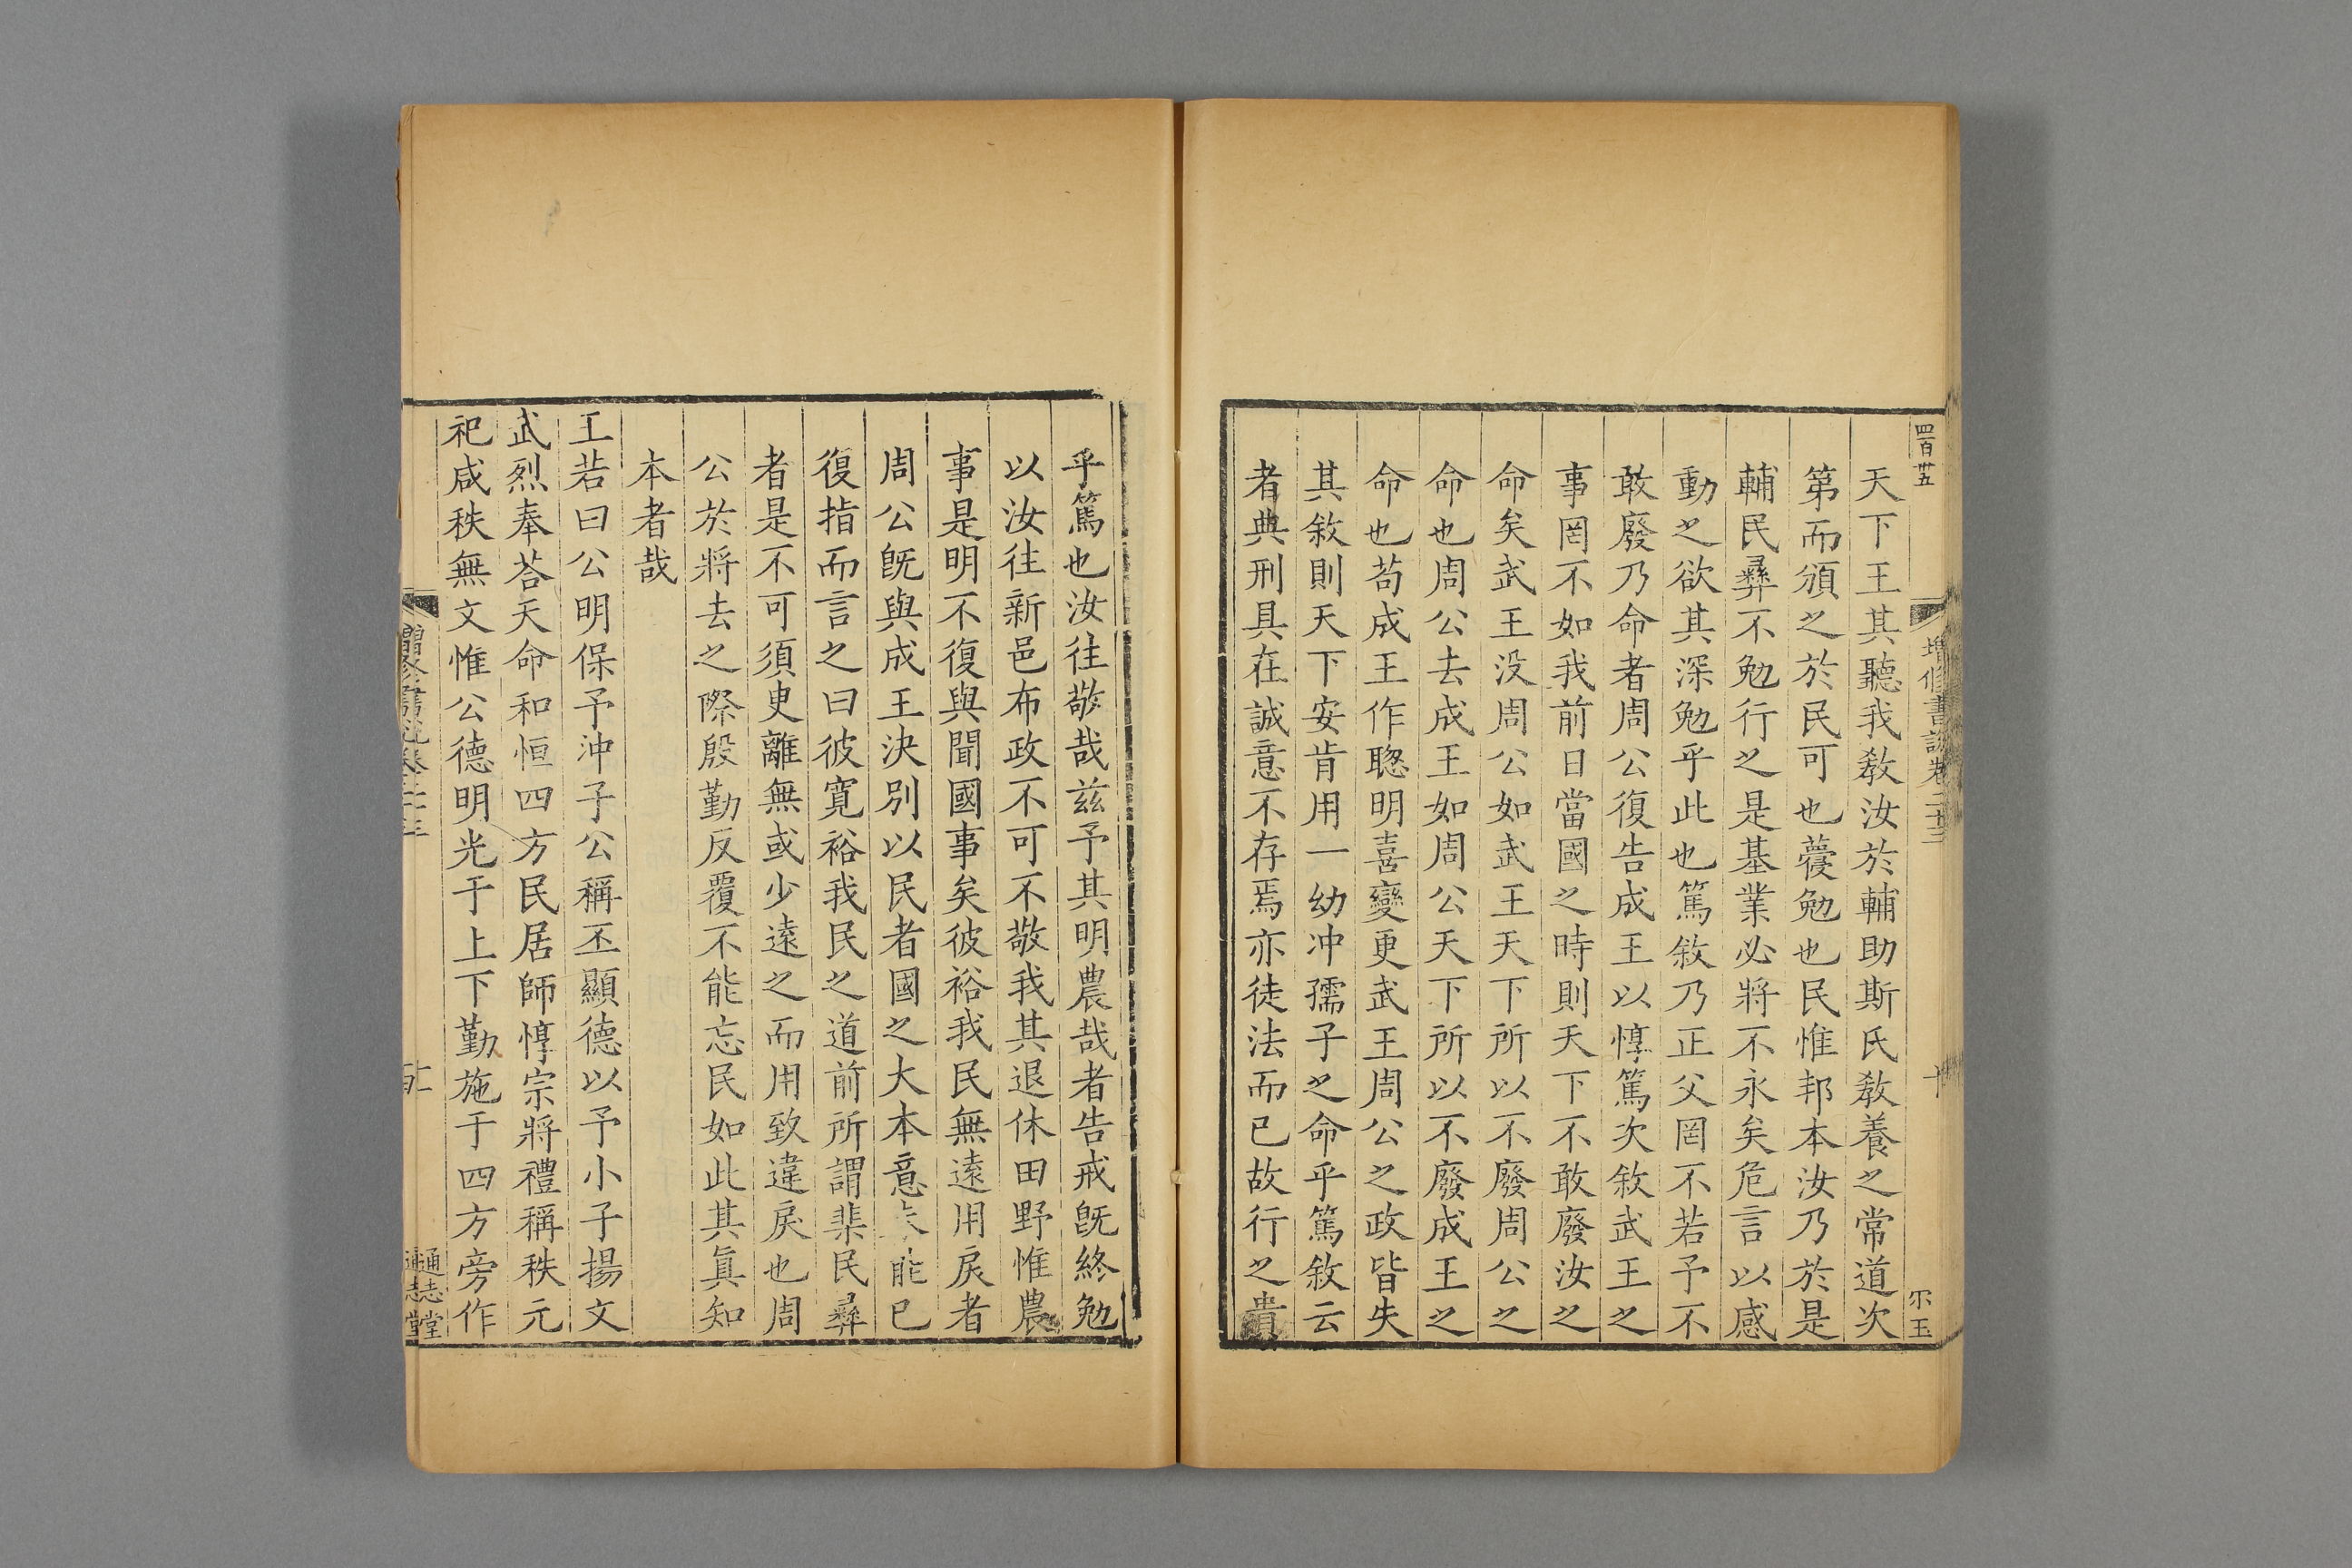 四百廿五
增修書說卷二十三
十
尔玉
天下王其聽我教汝於輔助斯民教養之常道次
第而頒之於民可也蘉勉也民惟邦本汝乃於是
輔民彝不勉行之是基業必將不永矣危言以感
動之欲其深勉乎此也篤敘乃正父罔不若予不
敢廢乃命者周公復告成王以惇篤次敘武王之
事罔不如我前日當國之時則天下不敢廢汝之
命矣武王没周公如武王天下所以不廢周公之
命也周公去成王如周公天下所以不廢成王之
命也苟成王作聰明喜變更武王周公之政皆失
其敘則天下安肯用一幼冲孺子之命乎篤敘云
者典刑具在誠意不存焉亦徒法而已故行之貴
乎篤也汝往敬哉兹予其明農哉者告戒旣終勉
以汝往新邑布政不可不敬我其退休田野惟農
事是明不復與聞國事矣彼裕我民無遠用戾者
周公旣與成王決別以民者國之大本意能已
復指而言之曰彼寬裕我民之道前所謂棐民彝
者是不可須更離無或少遠之而用致違戾也周
公於將去之際殷勤反覆不能忘民如此其眞知
本者哉
王若曰公明保予沖子公稱丕顯德以予小子揚文
武烈奉荅天命和恒四方民居師惇宗將禮稱秩元
祀咸秩無文惟公德明光于上下勤施于四方旁作
增修書說卷二十三
通志堂